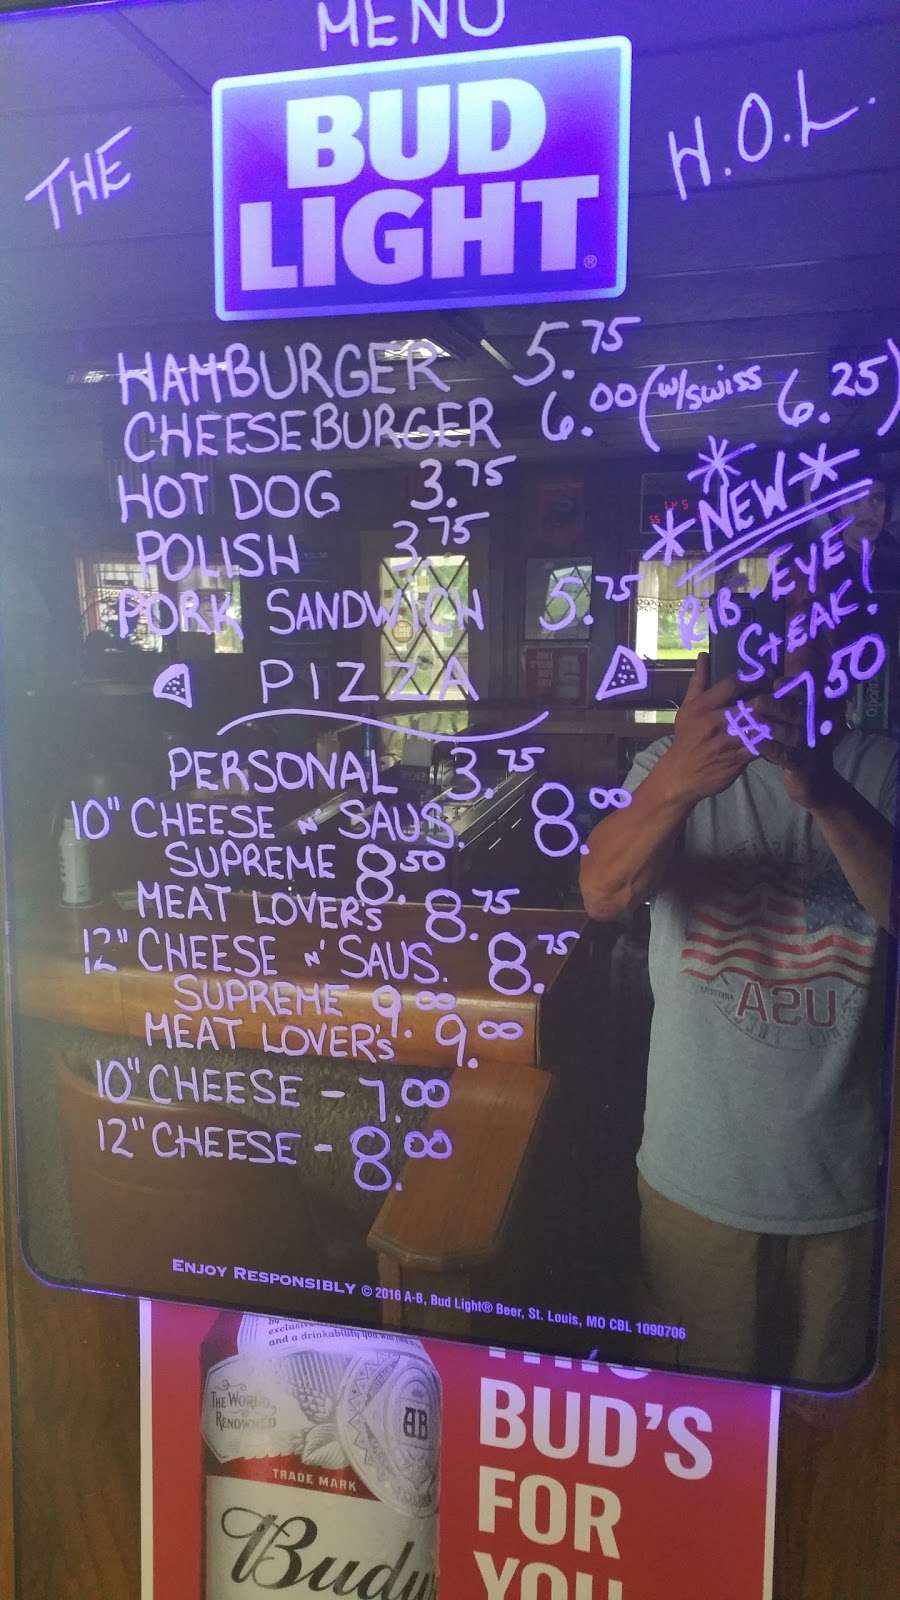 MENU
THE
BUD
LIGHT®
H.O.L.
HAMBURGER 5.75
CHEESEBURGER 6.00 (w/swiss 6.25)
HOT DOG 3.75
POLISH 3.75
PORK SANDWICH 5.75
*NEW*
RIB-EYE
STEAK!
$7.50
PIZZA
PERSONAL 3.75
10" CHEESE N SAUS. 8.00
SUPREME 8.50
MEAT LOVER'S 8.75
12" CHEESE N' SAUS. 8.75
SUPREME 9.00
MEAT LOVER'S 9.00
10" CHEESE - 7.00
12" CHEESE - 8.00
USA
ENJOY RESPONSIBLY © 2016 A-B, Bud Light® Beer, St. Louis, MO CBL 1090706
and a drinkability you
THE WORLD
RENOWNED
AB
TRADE MARK
Budw
BUD'S
FOR
YOU